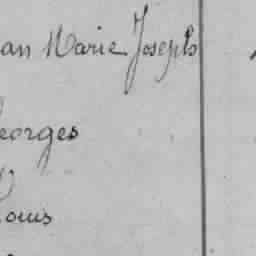 an Marie Joseph
eorges
Louis